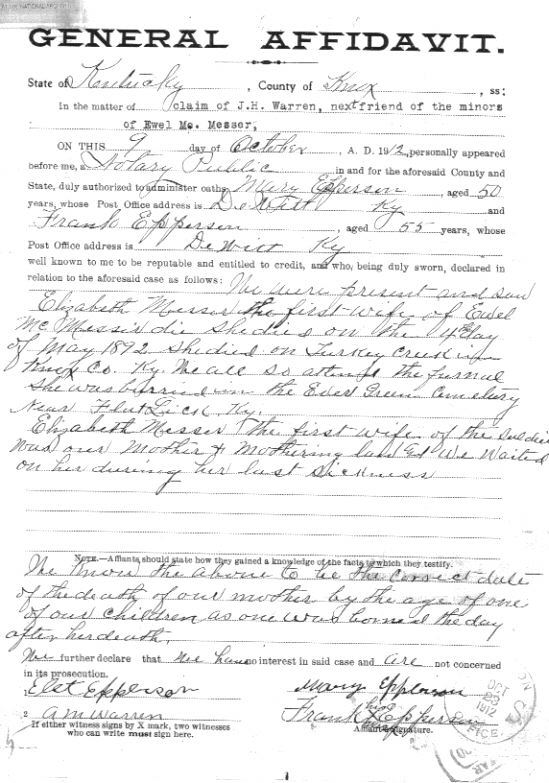 GENERAL AFFIDAVIT.
State of Kentucky, County of Knox, ss:
In the matter of claim of J.H. Warren, next friend of the minors
of Ewel Mc. Messer,
ON THIS 9 day of October, A. D. 1912, personally appeared
before me, a Notary Public in and for the aforesaid County and
State, duly authorized to administer oaths Mary Epperson, aged 50
years, whose Post Office address is DeWitt Ky and
Frank Epperson, aged 55 years, whose
Post Office address is DeWitt Ky
well known to me to be reputable and entitled to credit, and who, being duly sworn, declared in
relation to the aforesaid case as follows: We were present and saw
Elizabeth Messer the first wife of Ewel
Mc Messer die she died on the 4 day
of May 1892. She died on Turkey Creek in
Knox Co. Ky. We all so attend the furnel
she was burried in the Ever Green Cemetery
Near Flat Lick, Ky.
Elizabeth Messer the first wife of the Soldier
was our Mother & Mothering law and We Waited
on her during her last Sickness
NOTE.—Affiants should state how they gained a knowledge of the facts to which they testify.
We know the above to be the correct date
of the death of our mother by the age of one
of our children as one was borned the day
after her death.
We further declare that we have no interest in said case and are not concerned
in its prosecution.
1 Elet Epperson Mary Epperson
2 A M Warren Frank X Epperson
his mark
If either witness signs by X mark, two witnesses
who can write must sign here.
Affiant's signature.
OCT 23 1912